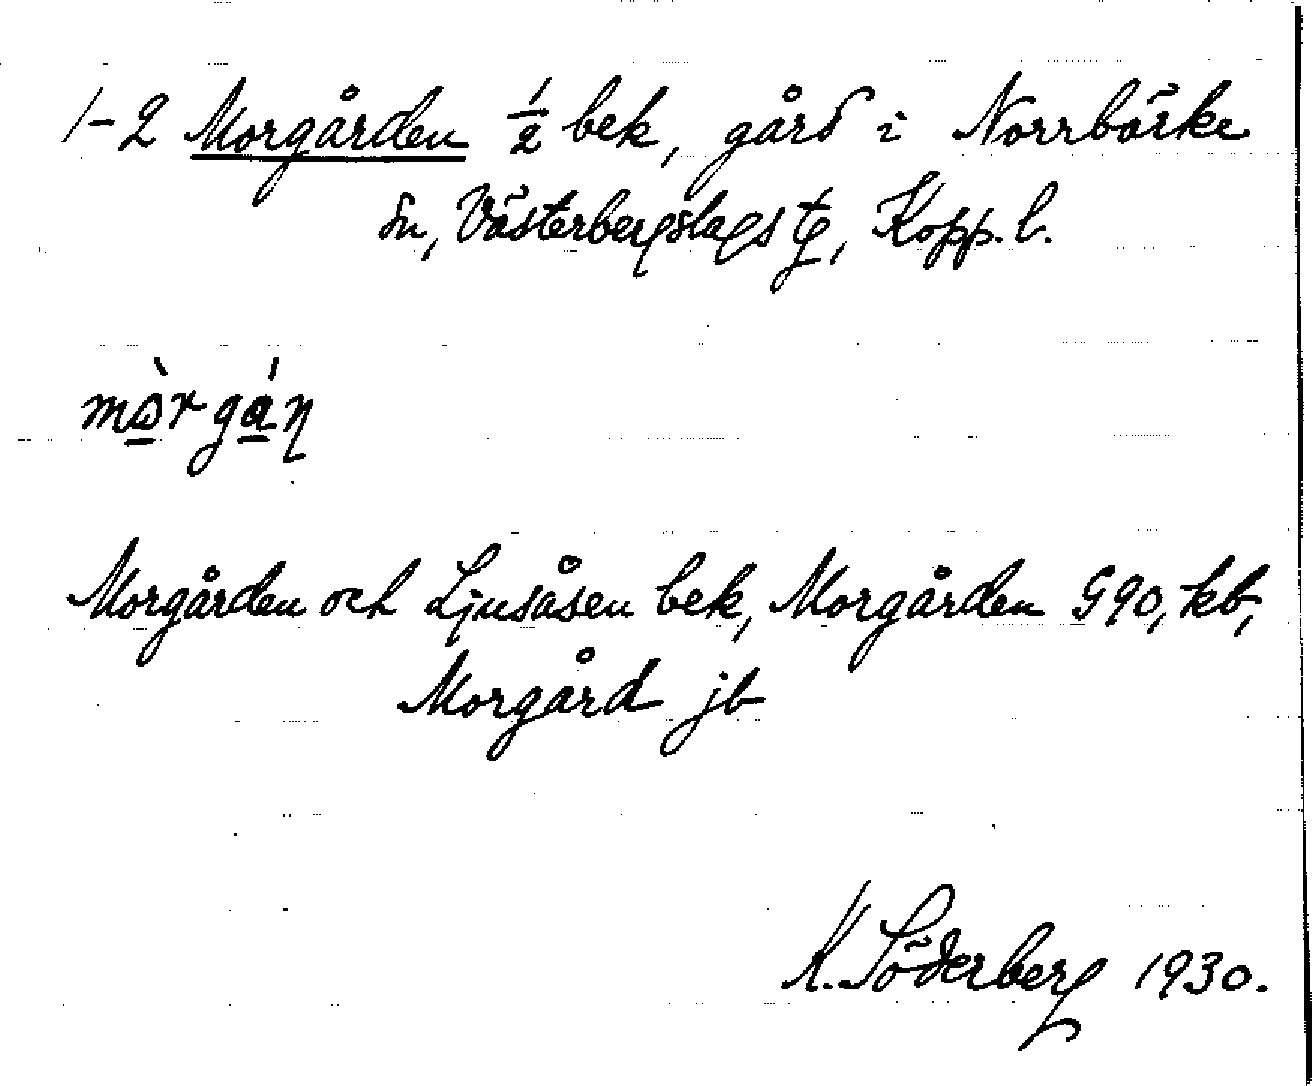 1-2 Morgården ½ bek, gård i Norrbärke
sn, Västerbergslags tg, Kopp. l.
mòrgáṇ
Morgården och Ljusåsen bek, Morgården G90, kb,
Morgård jb
K. Söderberg 1930.